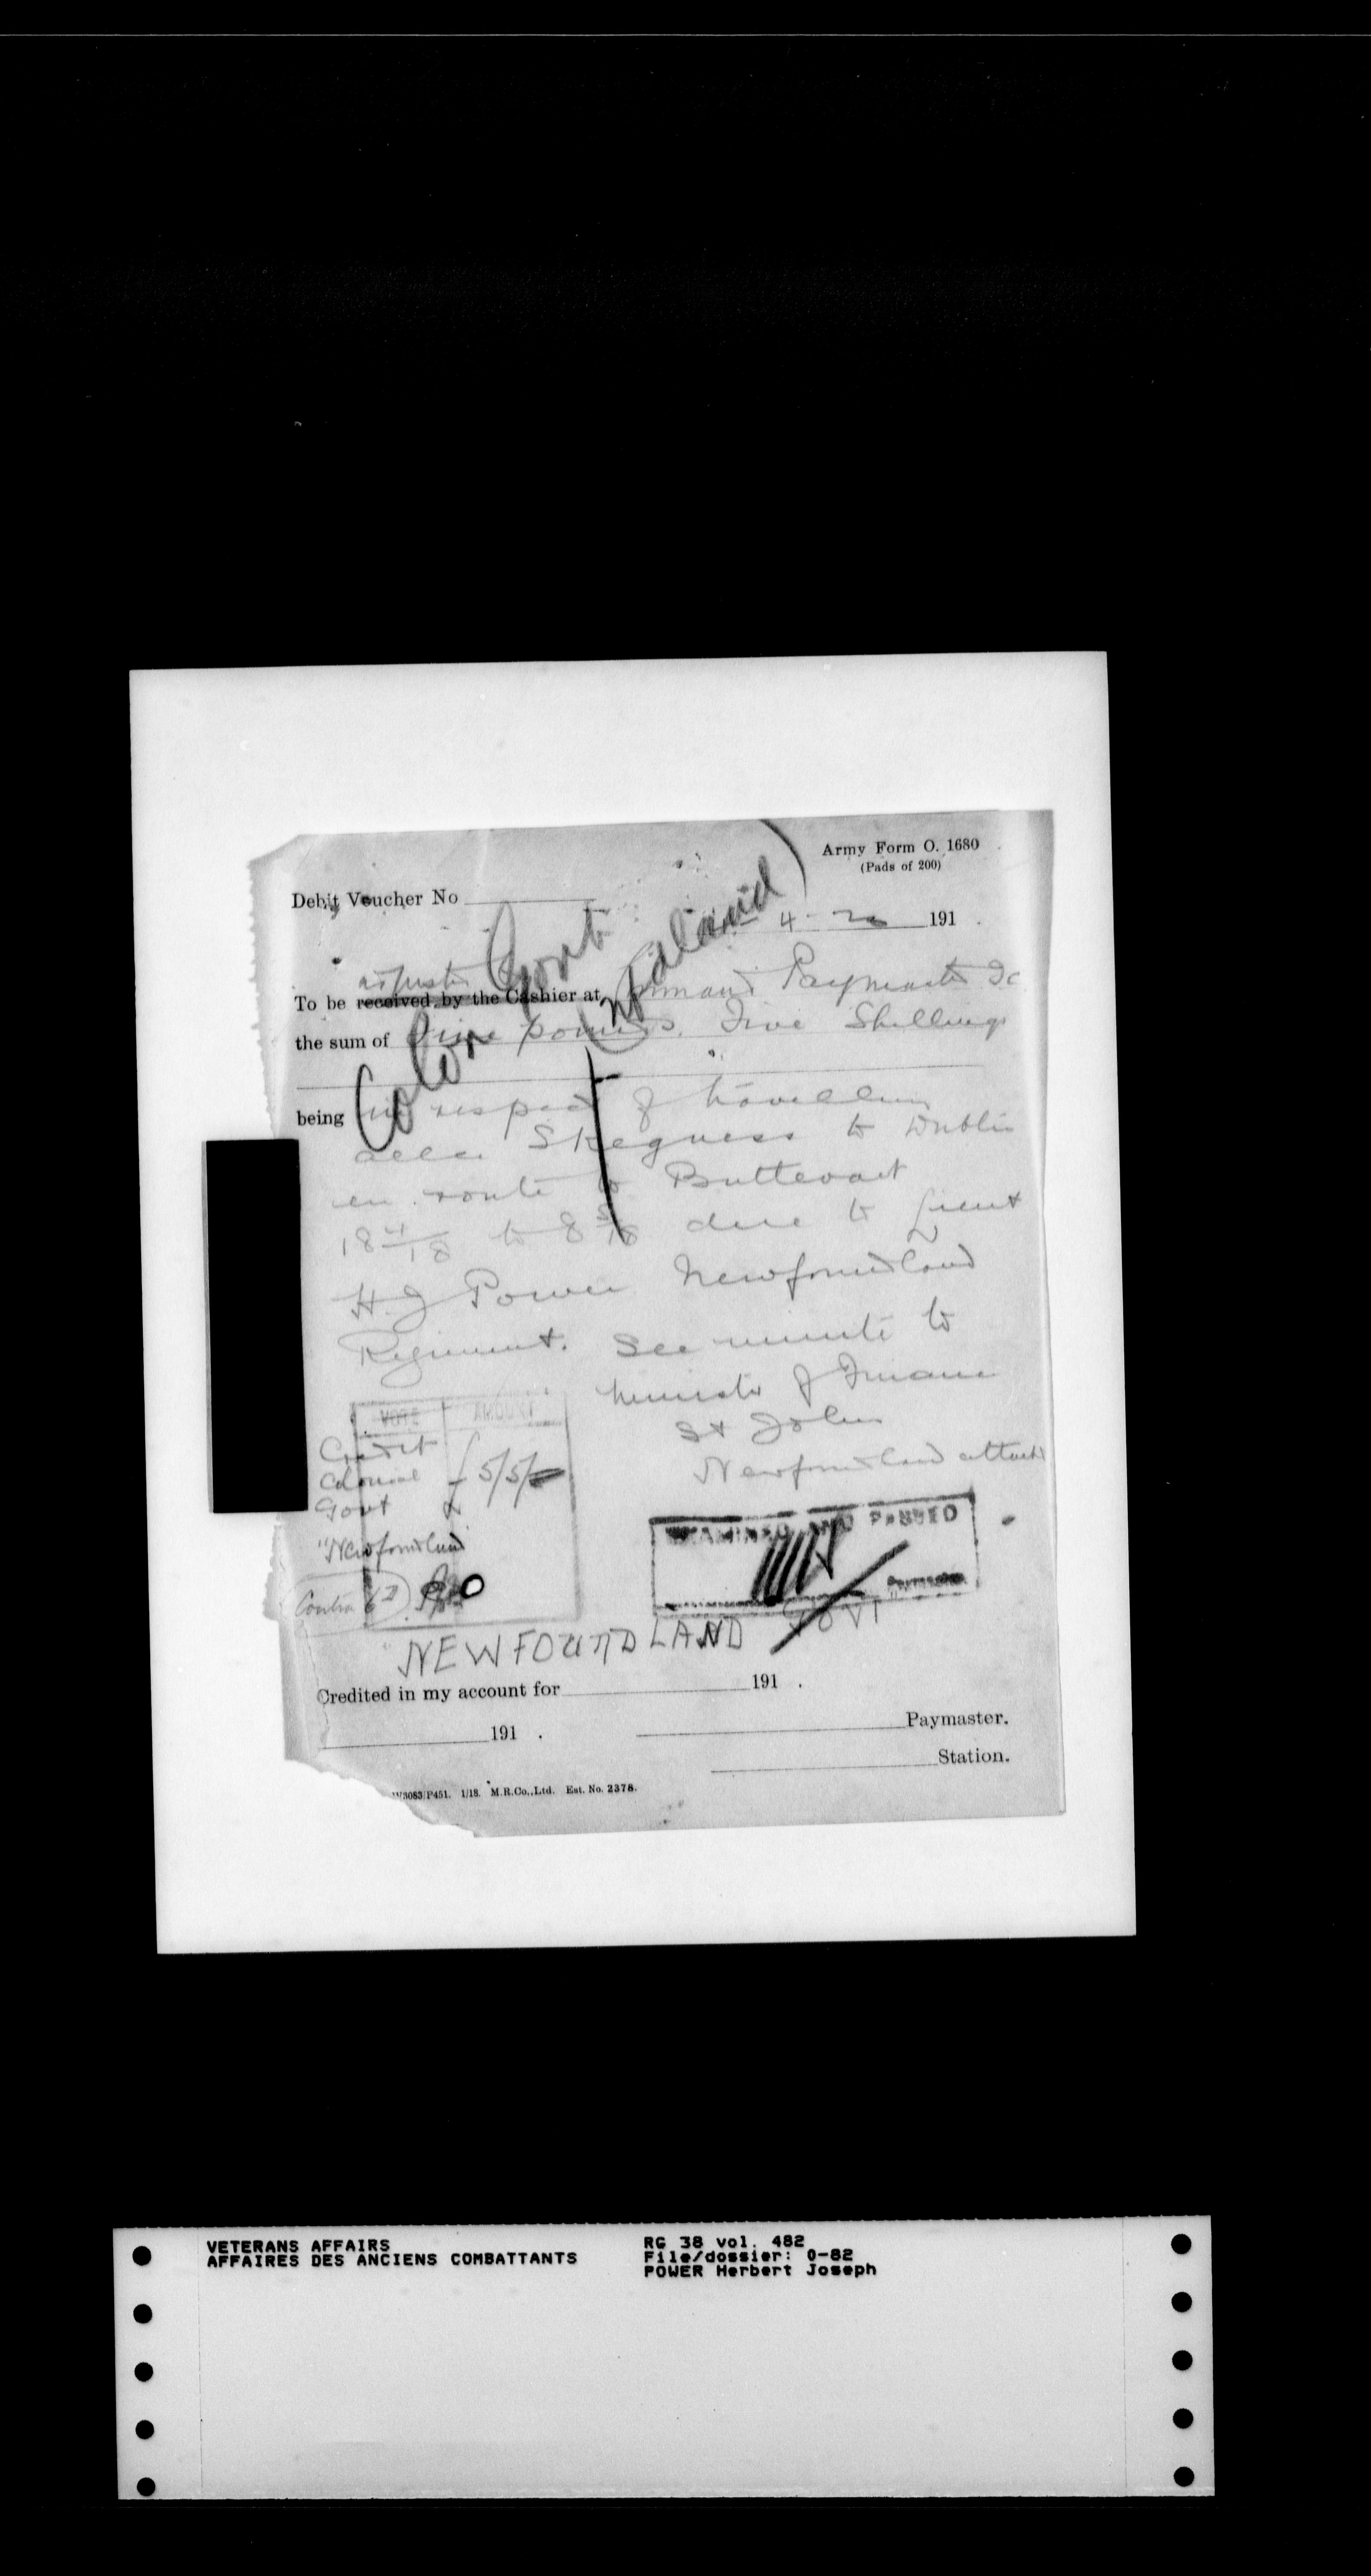 Army Form O. 1680
(Pads of 200)
Debit Voucher No
4 - 20 191 .
Colon Govt
(Nfland)
adjusted
To be received by the Cashier at Command Paymaster Ic
the sum of Five pounds. Five Shillings
being in respect of travelling
Skegness to Dublin
en route to Buttevant
18 4/18 to 8 5/18 due to Lieut
H J Power Newfoundland
Regiment. See minute to
Minister of Finance
St Johns
Newfoundland attached
VOTE AMOUNT
Credit
Colonial £ 5/5/-
Govt
"Newfoundland
Contra
EXAMINED AND PASSED
Paymaster
NEWFOUNDLAND GOVT"
Credited in my account for 191 .
191 .
Paymaster.
Station.
W3083/P451. 1/18. M.R.Co.,Ltd. Est. No. 2378.
VETERANS AFFAIRS
AFFAIRES DES ANCIENS COMBATTANTS
RG 38 vol. 482
File/dossier: O-82
POWER Herbert Joseph